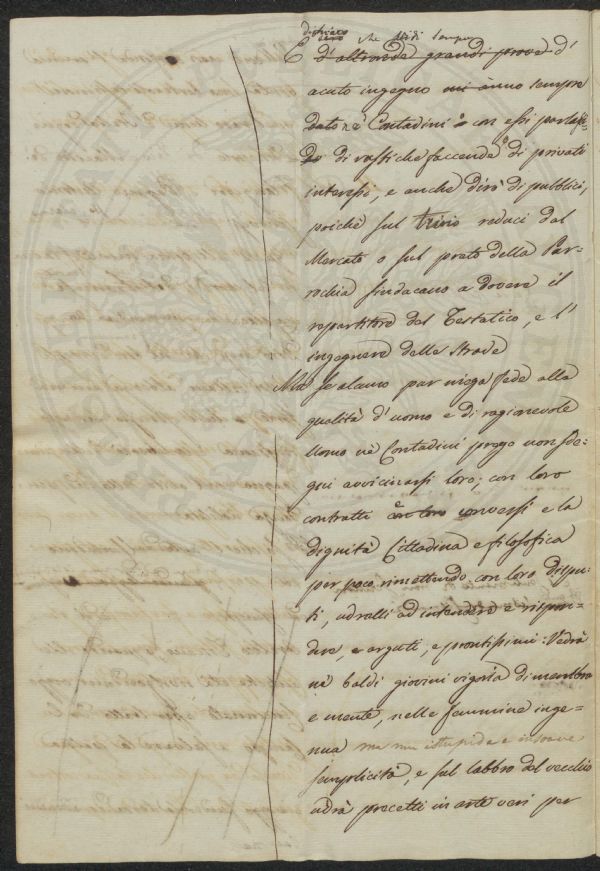 che vidi sempre
E d'altronde grandi prove d'
acuto ingegno mi ànno sempre
dato ne' Contadini con essi parlan
do di rustiche faccende di privati
interessi, e anche dirò di pubblici,
poichè sul trivio reduci dal
Mercato o sul prato della Par=
rochia sindacano a dovere il
repartitore del Testatico, e l'
ingegnere delle strade
Ma se alcuno pur niega fede alla
qualità d'uomo e di ragionevole
Uomo ne' Contadini prego non sde=
gni avvicinarsi loro; con loro
contratti con loro conversi e la
dignità Cittadina e filosofica
per poco rimettendo con loro dispu=
ti, udralli ad intendere e rispon=
dere, e arguti, e prontissimi: Vedrà
ne' baldi giovini vigoria di membra
e mente, nelle femmine inge=
nua ma non istupida e
semplicità, e sul labbro del vecchio
udrà precetti in arte veri per